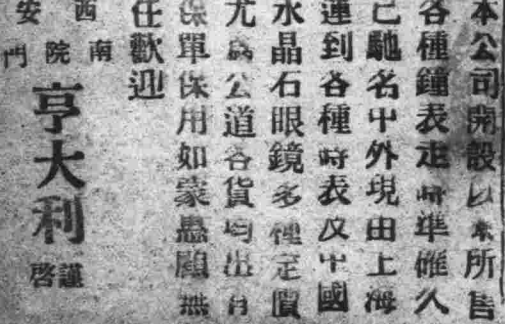 本公司開設以來所售
各種鐘表走時準確久
已馳名中外現由上海
運到各種時表及中國
水晶石眼鏡多種定價
尤為公道各貨均出有
保單保用如蒙惠顧無
任歡迎
西安
南院門
亨大利
謹啓